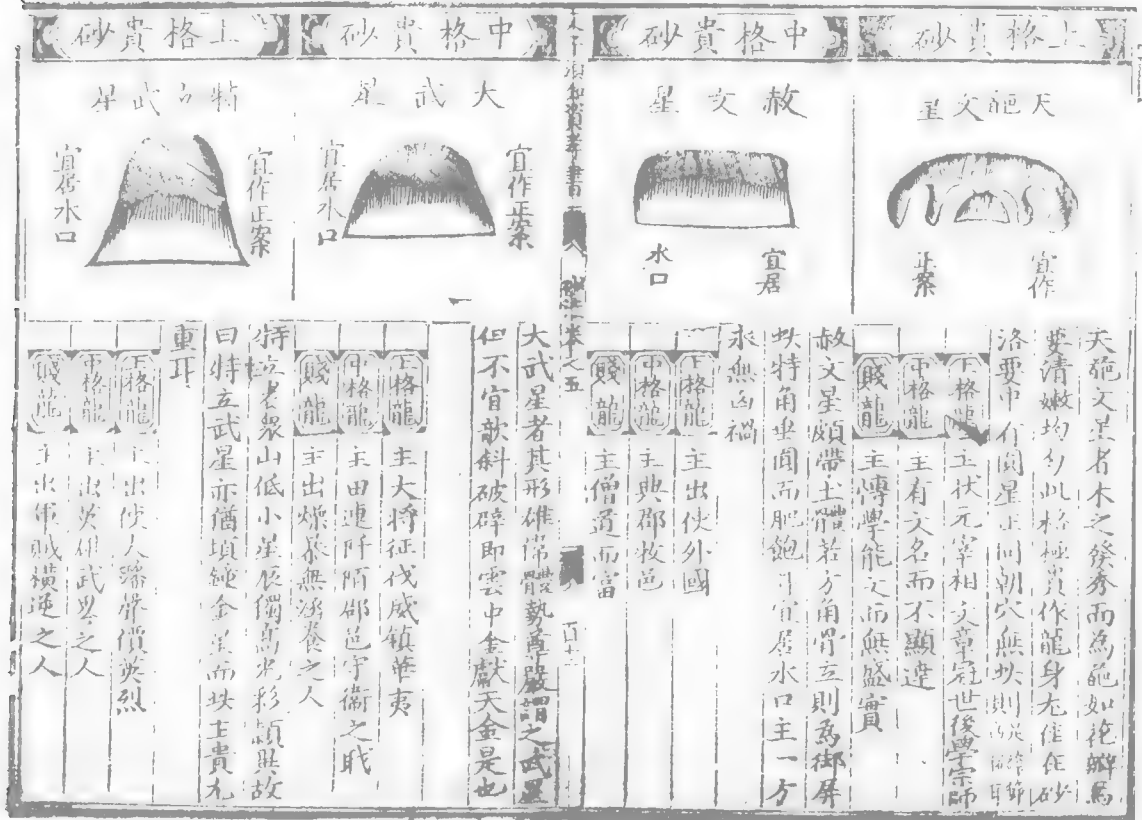 上格貴砂
天葩文星
宜作
正案
天葩文星者木之發秀而為葩如花瓣焉
要清嫩均勻此格極貴作龍身尤佳在砂
洛要中有圓星正向朝穴無
上格龍 主狀元宰相文章冠世後學宗師
中格龍 主有文名而不顯達
賤龍 主博學能文而無盛實
中格貴砂
赦文星
宜居
水口
赦文星頗帶土體若方角骨立則為御屏
此特角垂圓而肥飽宜居水口主一方
永無凶禍
上格龍 主出使外國
中格龍 主典郡牧邑
賤龍 主僧道而富
卷之五
中格貴砂
大武星
宜作正案
宜居水口
大武星者其形雄偉體勢尊嚴謂之武星
但不宜欹斜破碎即雲中金獻天金是也
上格龍 主大將征伐威鎮華夷
中格龍 主田連阡陌郡邑守衞之職
賤龍 主出燥暴無涵養之人
上格貴砂
特立武星
宜作正案
宜居水口
特立者眾山低小星辰獨高光彩穎異故
曰特立武星亦猶頓鐘金星而此主貴尤
重耳
上格龍 主出使人藩聲價英烈
中格龍 主出英雄武勇之人
賤龍 主出軍賊橫逆之人